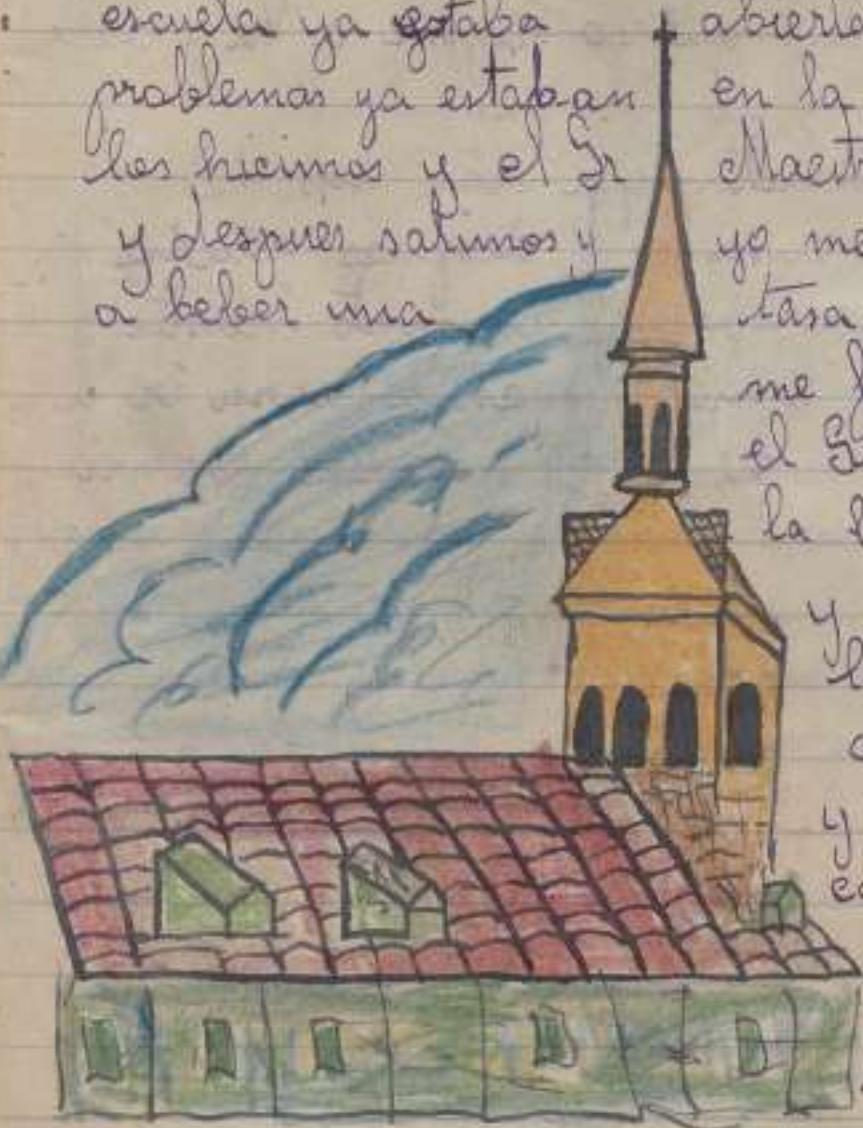 escuela ya estaba abierta
problemas ya estaban en la
los hicimos y el Sr Maest
y después salimos y yo me
a beber una tasa
me
el Sr
la
y
y